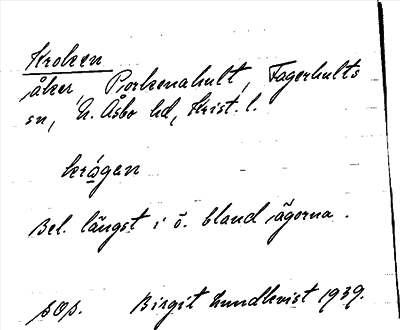 Kroken
åker, Porkenahult, Fagerhults
sn, N. Åsbo hd, Krist. l.
krågen
Bel. längst i ö. bland ägorna.
sOp. Birgit Lundkvist 1939.